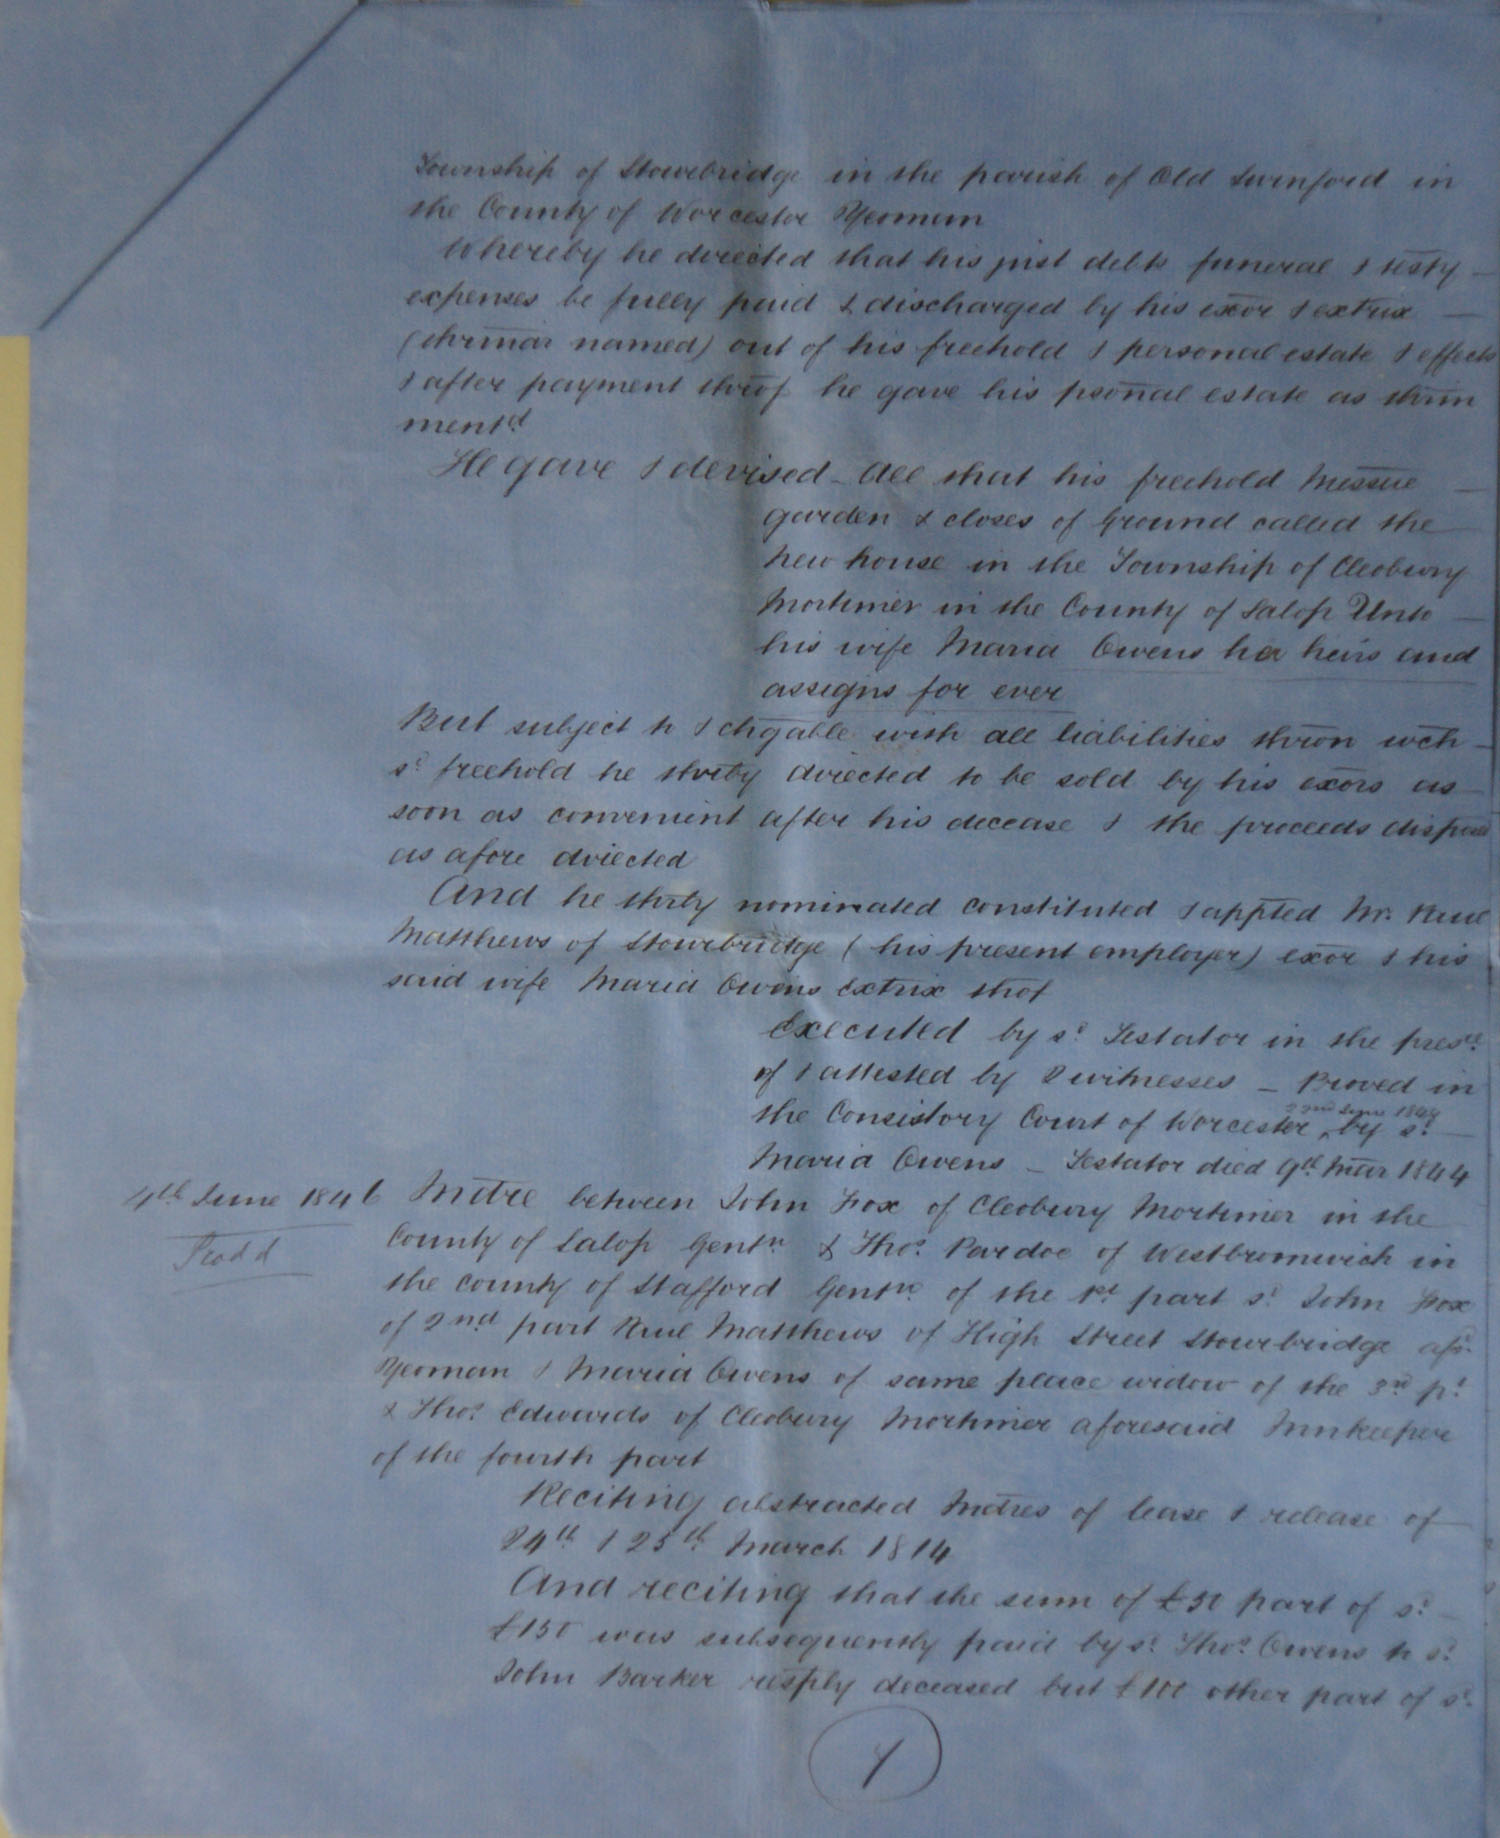 Township of Stourbridge in the parish of Old Swinford in
the County of Worcester Yeoman
Whereby he directed that his just debts funeral & testy
expenses be fully paid & discharged by his exor & extrix
(thrinar named) out of his freehold & personal estate & effects
& after payment throf he gave his psonal estate as thrin
mentd
He gave & devised - All that his freehold Messue
garden & closes of Ground called the
New house in the Township of Cleobury
Mortimer in the County of Salop Unto
his wife Maria Owens her heirs and
assigns for ever
But subject to & chgable with all liabilities thron wch
sd freehold he thrby directed to be sold by his exors as
soon as convenient after his decease & the proceeds disposed
as afore directed
And he thrby nominated constituted & appted Mr. Paul
Matthews of Stourbridge (his present employer) exor & his
said wife Maria Owens Extrix throf
Executed by sd Testator in the presce
of & attested by 2 witnesses - Proved in
the Consistory Court of Worcester 22nd June 1844 by sd
Maria Owens - Testator died 9th Mar 1844
4th June 1846 Indre between John Fox of Cleobury Mortimer in the
County of Salop Gentn & Thos Pardoe of Westbromwich in
the County of Stafford Gentn of the 1st part sd John Fox
of 2nd part Paul Matthews of High Street Stourbridge afsd
Yeoman & Maria Owens of same place widow of the 3rd pt
& Thos Edwards of Cleobury Mortimer aforesaid Innkeeper
of the fourth part
Reciting abstracted Indres of lease & release of
24th & 25th March 1814
And reciting that the sum of £50 part of sd
£150 was subsequently paid by sd Thos Owens to sd
John Barker resply deceased but £100 other part of sd